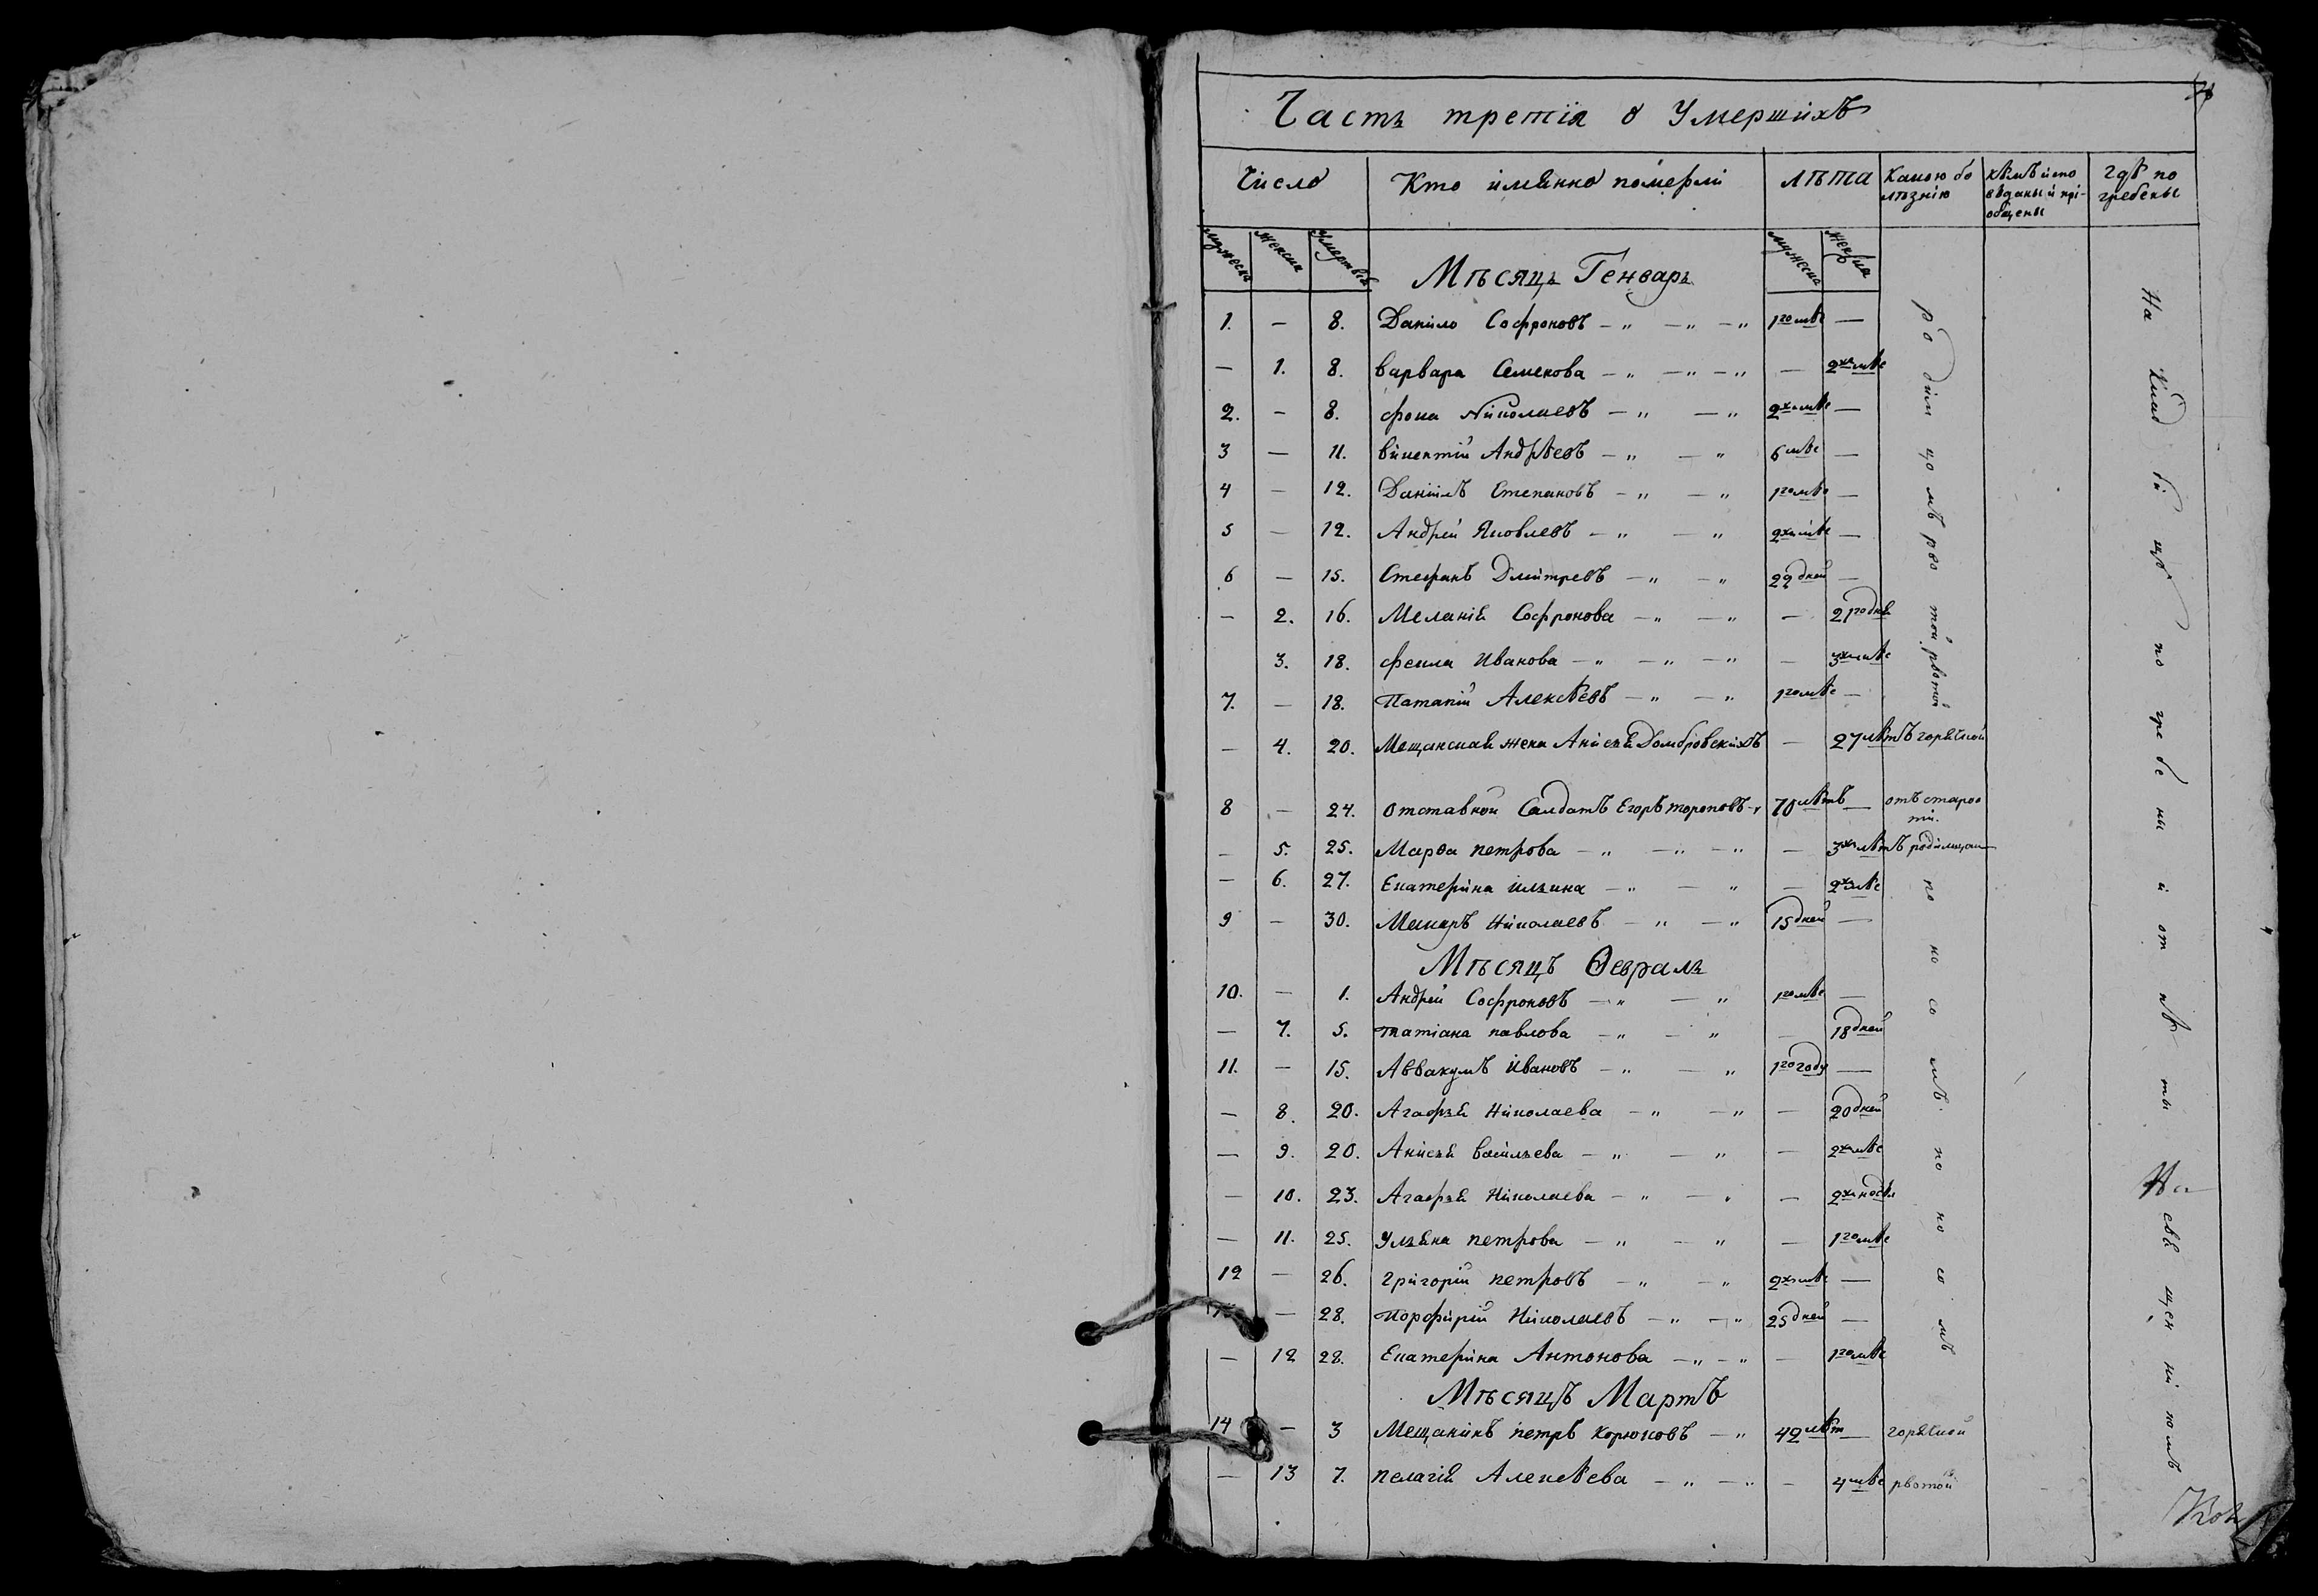 Часть третія о Умершихъ
Число Кто имянно померли лѣта Какою бо лѣзнію кѣмъ испо вѣданы и прі- общены гдѣ по гребены
мужеска женска умертвій мужеска женска
Мѣсяцъ Генварь
1. — 8. Данило Софроновъ — „ — „ — „ 1го мѣс —
— 1. 8. варвара Семенова — „ — „ — „ — 2хъ мѣс
2. — 8. фока Николаевъ — „ — „ 2хъ мѣс —
3 — 11. викентій Андрѣевъ — „ — „ 6 мѣс —
4 — 12. Даніилъ Степановъ — „ — „ 1го мѣс —
5 — 12. Андрей Яковлевъ — „ — „ 2хъ мѣс —
6 — 15. Стефанъ Дмитревъ — „ — „ 22 дней —
— 2. 16. Меланія Софронова — „ — „ — 21го дня
3. 18. фекла Иванова — „ — „ — „ — 3хъ мѣс
7. — 18. Патапій Алексѣевъ — „ — „ 1го мѣс —
— 4. 20. Мещанская жена Анисья Домбровскихъ — 27 лѣтъ горячкой
8 — 24. отставной Салдатъ Егоръ тороповъ 70 лѣтъ — отъ старос ти.
— 5. 25. Марѳа петрова — „ — „ — „ — 3хъ лѣтъ родимцом
— 6. 27. Екатерина ильина — „ — „ — 2хъ мѣс
9 — 30. Макаръ Николаевъ — „ — „ 15 дней —
Мѣсяцъ Ѳевраль
10. — 1. Андрей Софроновъ — „ — „ 1го мѣс —
— 7. 5. татіана павлова — „ — „ — 18 дней
11. — 15. Аввакумъ Ивановъ — „ — „ 1го году —
— 8. 20. Агафья Николаева — „ — „ — 20 дней
— 9. 20. Анисья васильева — „ — „ — 2хъ мѣс
— 10. 23. Агафья Николаева — „ — „ — 2хъ недѣл
— 11. 25. Ульяна петрова — „ — „ — 1го мѣс
12 — 26. григорій петровъ — „ — „ 2хъ мѣс —
— 28. Порфирій Николаевъ — „ — „ 25 дней —
— 12 28. Екатерина Антонова — „ — „ — 1го мѣс
Мѣсяцъ Мартъ
14 — 3 Мещанинъ петръ Корюковъ — „ 42 лѣт — горячкой
— 13 7. пелагія Алексѣева — „ — „ — 4 мѣс рвотой
ро дим цо мъ рво той рвотой
по но со мъ. по но со мъ
На Клад би щѣ по гре бе ны и от пѣ ты
Свя щен ни ком